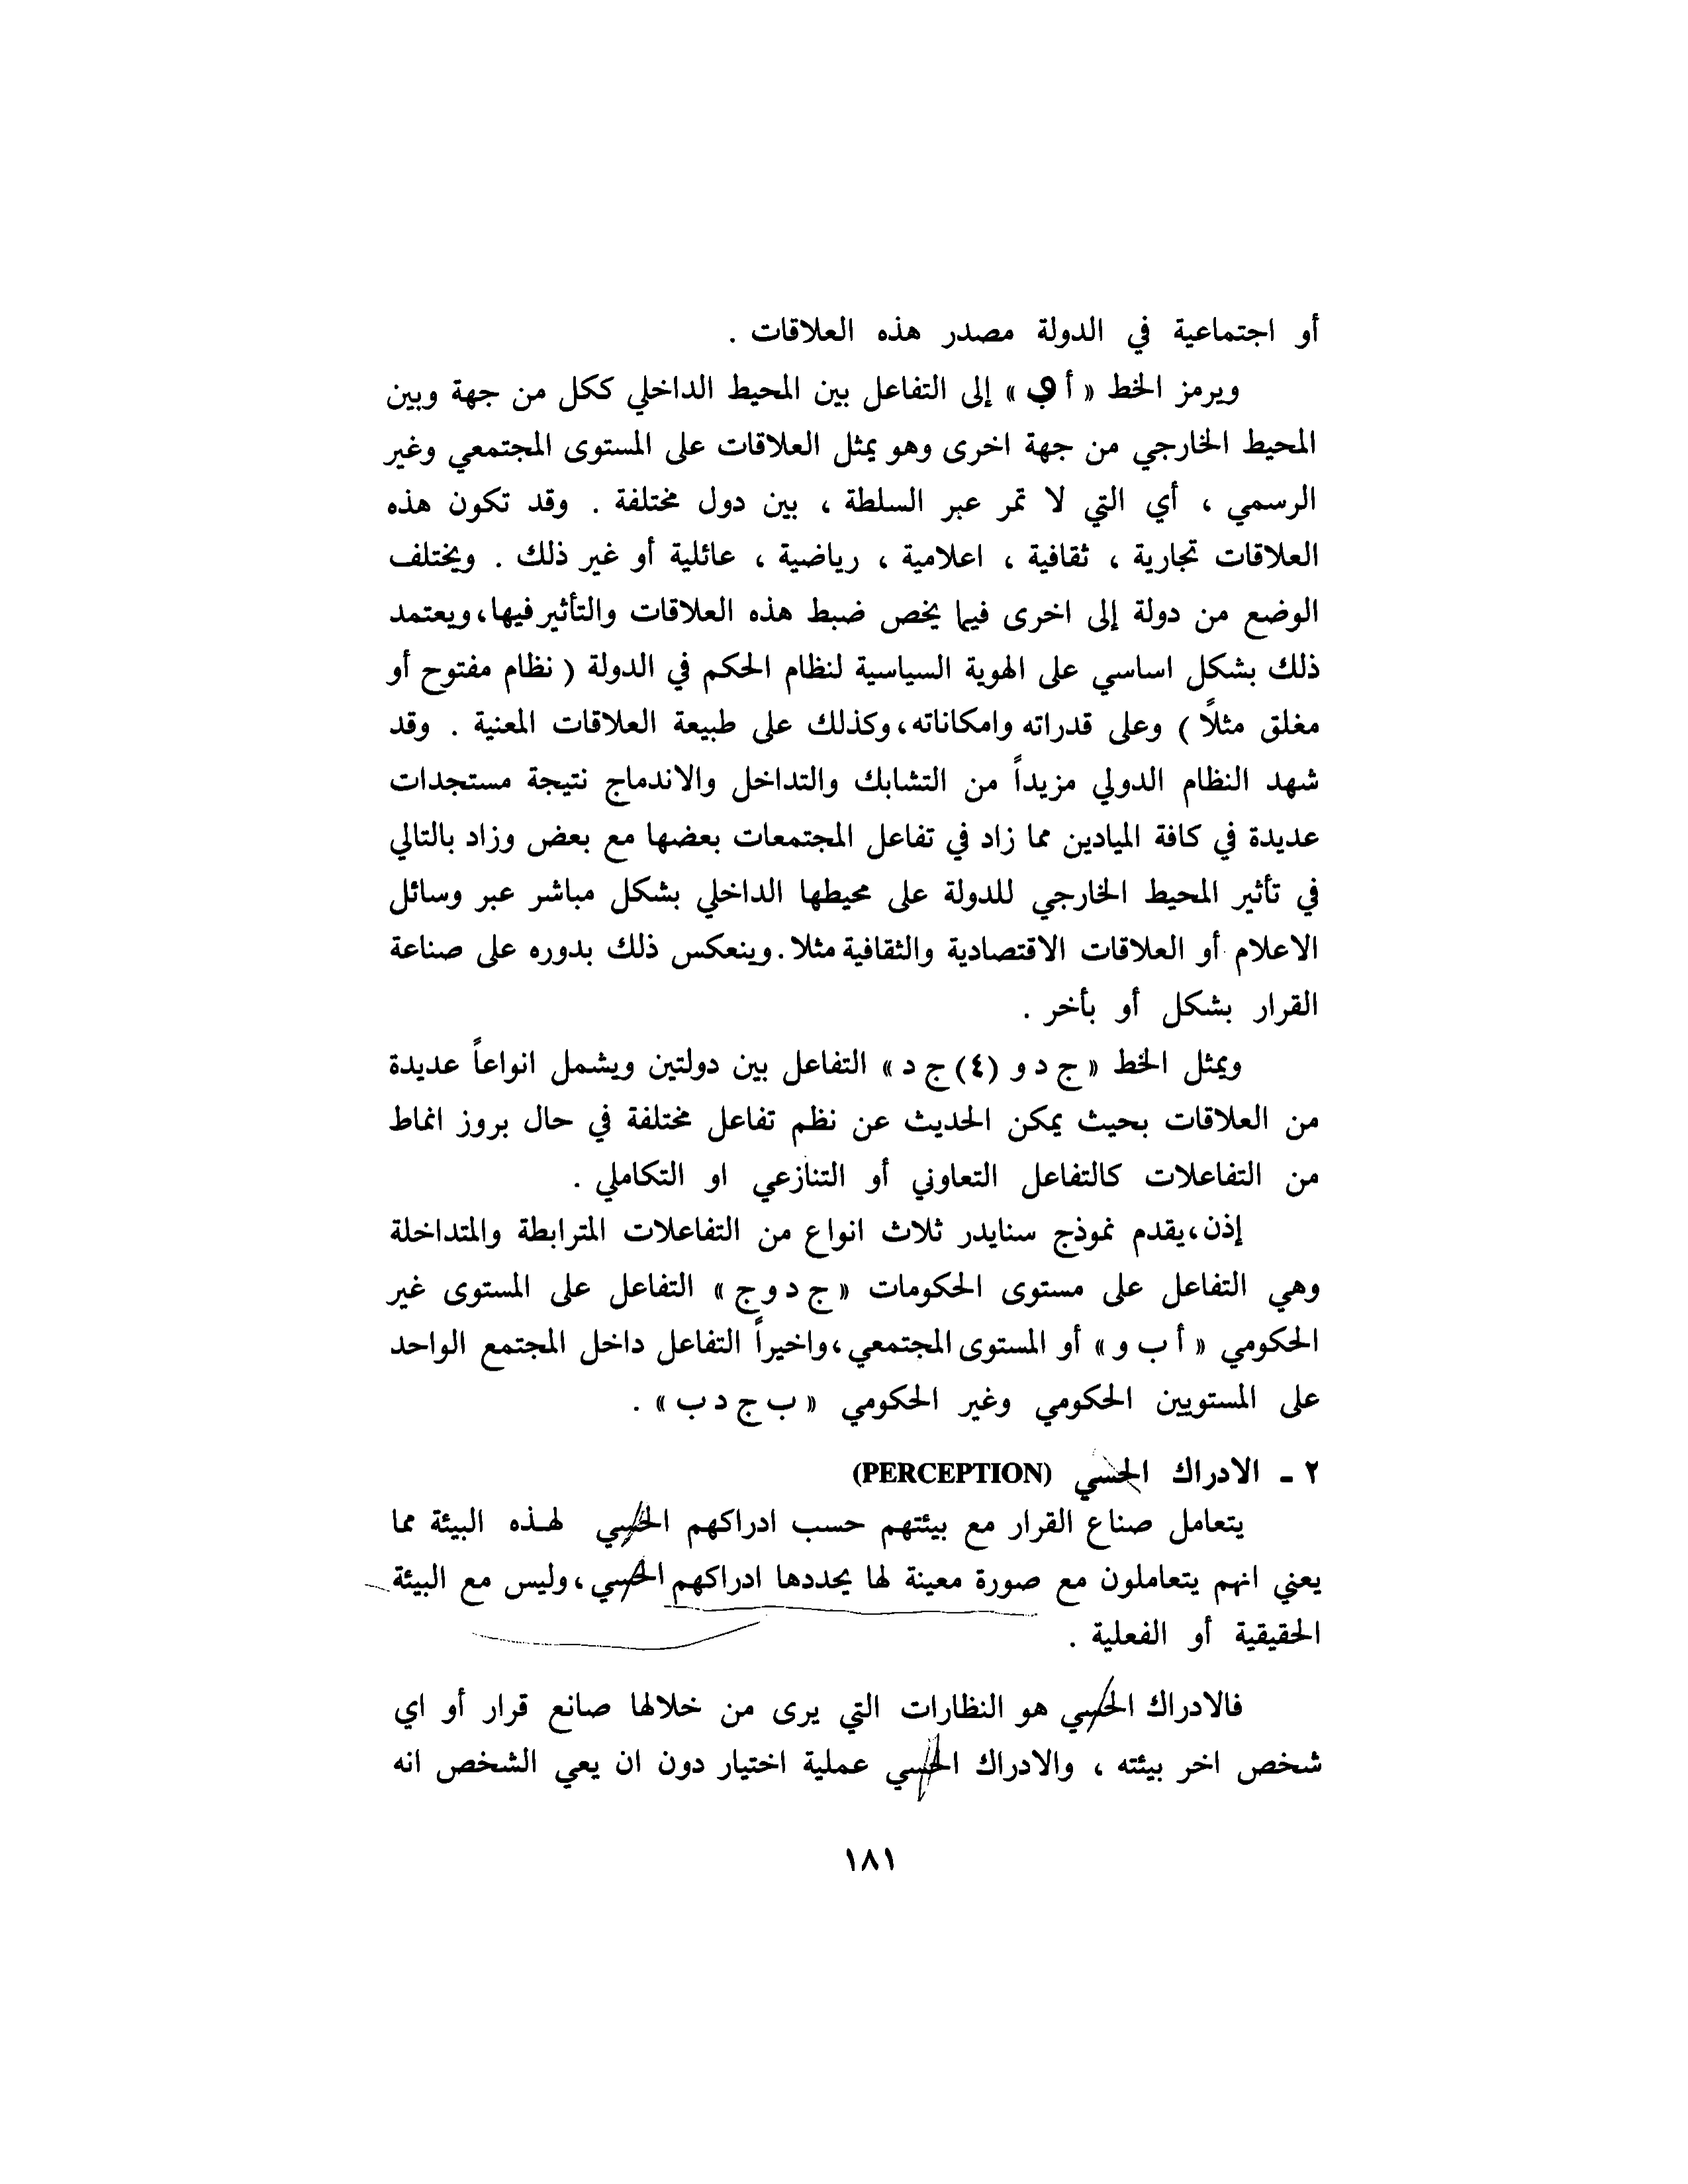 أو اجتماعية في الدولة مصدر هذه العلاقات .
ويرمز الخط « أ و » إلى التفاعل بين المحيط الداخلي ككل من جهة وبين
المحيط الخارجي من جهة اخرى وهو يمثل العلاقات على المستوى المجتمعي وغير
الرسمي ، أي التي لا تمر عبر السلطة ، بين دول مختلفة . وقد تكون هذه
العلاقات تجارية ، ثقافية ، اعلامية ، رياضية ، عائلية أو غير ذلك . ويختلف
الوضع من دولة إلى اخرى فيما يخص ضبط هذه العلاقات والتأثير فيها، ويعتمد
ذلك بشكل اساسي على الهوية السياسية لنظام الحكم في الدولة ( نظام مفتوح أو
مغلق مثلاً ) وعلى قدراته وامكاناته، وكذلك على طبيعة العلاقات المعنية . وقد
شهد النظام الدولي مزيداً من التشابك والتداخل والاندماج نتيجة مستجدات
عديدة في كافة الميادين مما زاد في تفاعل المجتمعات بعضها مع بعض وزاد بالتالي
في تأثير المحيط الخارجي للدولة على محيطها الداخلي بشكل مباشر عبر وسائل
الاعلام أو العلاقات الاقتصادية والثقافية مثلا . وينعكس ذلك بدوره على صناعة
القرار بشكل أو بأخر .
ويمثل الخط « ج د و (٤) ج د » التفاعل بين دولتين ويشمل انواعاً عديدة
من العلاقات بحيث يمكن الحديث عن نظم تفاعل مختلفة في حال بروز انماط
من التفاعلات كالتفاعل التعاوني أو التنازعي او التكاملي .
إذن، يقدم نموذج سنايدر ثلاث انواع من التفاعلات المترابطة والمتداخلة
وهي التفاعل على مستوى الحكومات « ج د و ج » التفاعل على المستوى غير
الحكومي « أ ب و » أو المستوى المجتمعي، واخيراً التفاعل داخل المجتمع الواحد
على المستويين الحكومي وغير الحكومي « ب ج د ب » .
٢ - الادراك الحسي (PERCEPTION)
يتعامل صناع القرار مع بيئتهم حسب ادراكهم الحسي لهذه البيئة مما
يعني انهم يتعاملون مع صورة معينة لها يحددها ادراكهم الحسي، وليس مع البيئة
الحقيقية أو الفعلية .
فالادراك الحسي هو النظارات التي يرى من خلالها صانع قرار أو اي
شخص اخر بيئته ، والادراك الحسي عملية اختيار دون ان يعي الشخص انه
١٨١